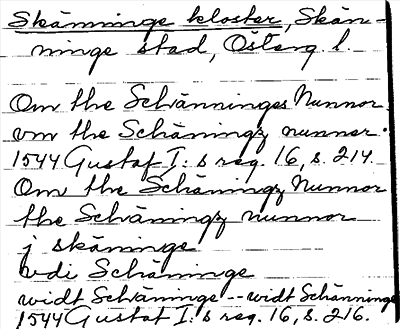 Skänninge kloster, Skän-
ninge stad, Österg. l.
Om the Schänninges Nunnor
om the Schäningz nunner.
1544 Gustaf I:s reg. 16, s. 214.
Om the Schäningz Nunnor
the Schäningz nunnor
j skäninge
vdi Schäninge
widt Schäninge -- widt Schänninge
1544 Gustaf I:s reg. 16, s. 216.